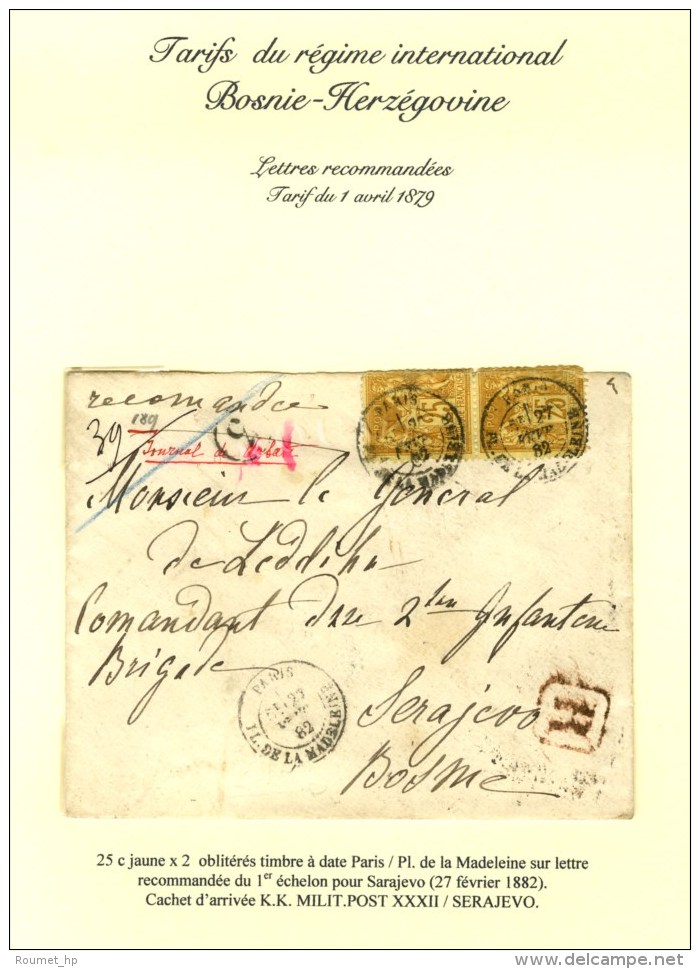 Tarifs du régime international
Bosnie-Herzégovine
Lettres recommandées
Tarif du 1 avril 1879
recomandée
189
39
Journal de
Monsieur le General
de Leddihn
Comandant der 2ten Infanterie
Brigade
Serajevo
Bosnie
R
PARIS
27
82
PL. DE LA MADELEINE
25 c jaune x 2 oblitérés timbre à date Paris / Pl. de la Madeleine sur lettre
recommandée du 1er échelon pour Sarajevo (27 février 1882).
Cachet d'arrivée K.K. MILIT.POST XXXII / SERAJEVO.
Roumet_hp
delcampe.net